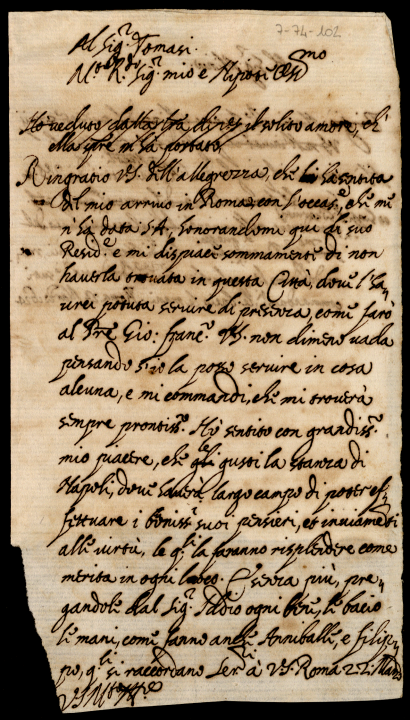 7-74-102
Al Sig.r Tomasi.
M.to R.do Sig.r mio e Nipote Oss.mo
Ho veduto dalla sua di V.S. il solito amore, ch'
ella sempre m'ha portato.
Ringratio V.S. dell'allegrezza, che ha sentita
del mio arrivo in Roma, con l'occas.e che me
n'ha data S.A. honorandomi qui di suo
Resid.e e mi dispiace sommamente di non
haverla trovata in questa Città, dove l'ha,,
urei potuta servire di presenza, come farò
al Pre Gio: Franc.o V.S. non dimeno vada
pensando s'io la posso servire in cosa
alcuna, e mi commandi, che mi troverà
sempre prontiss.o Ho sentito con grandiss.o
mio piacere, che gli gusti la stanza di
Napoli, dove haverà largo campo di poter ef,,
fettuare i boniss.i suoi pensieri, et inviamenti
alle virtù, le q.li la faranno risplendere come
merita in ogni loco. E senza più, pre,,
gandole dal Sig.r Iddio ogni bene, le bacio
le mani, come fanno anche Anniballe, e Filip,,
po, q.li si raccordano Ser.ri à V.S. Roma 22: Marzo